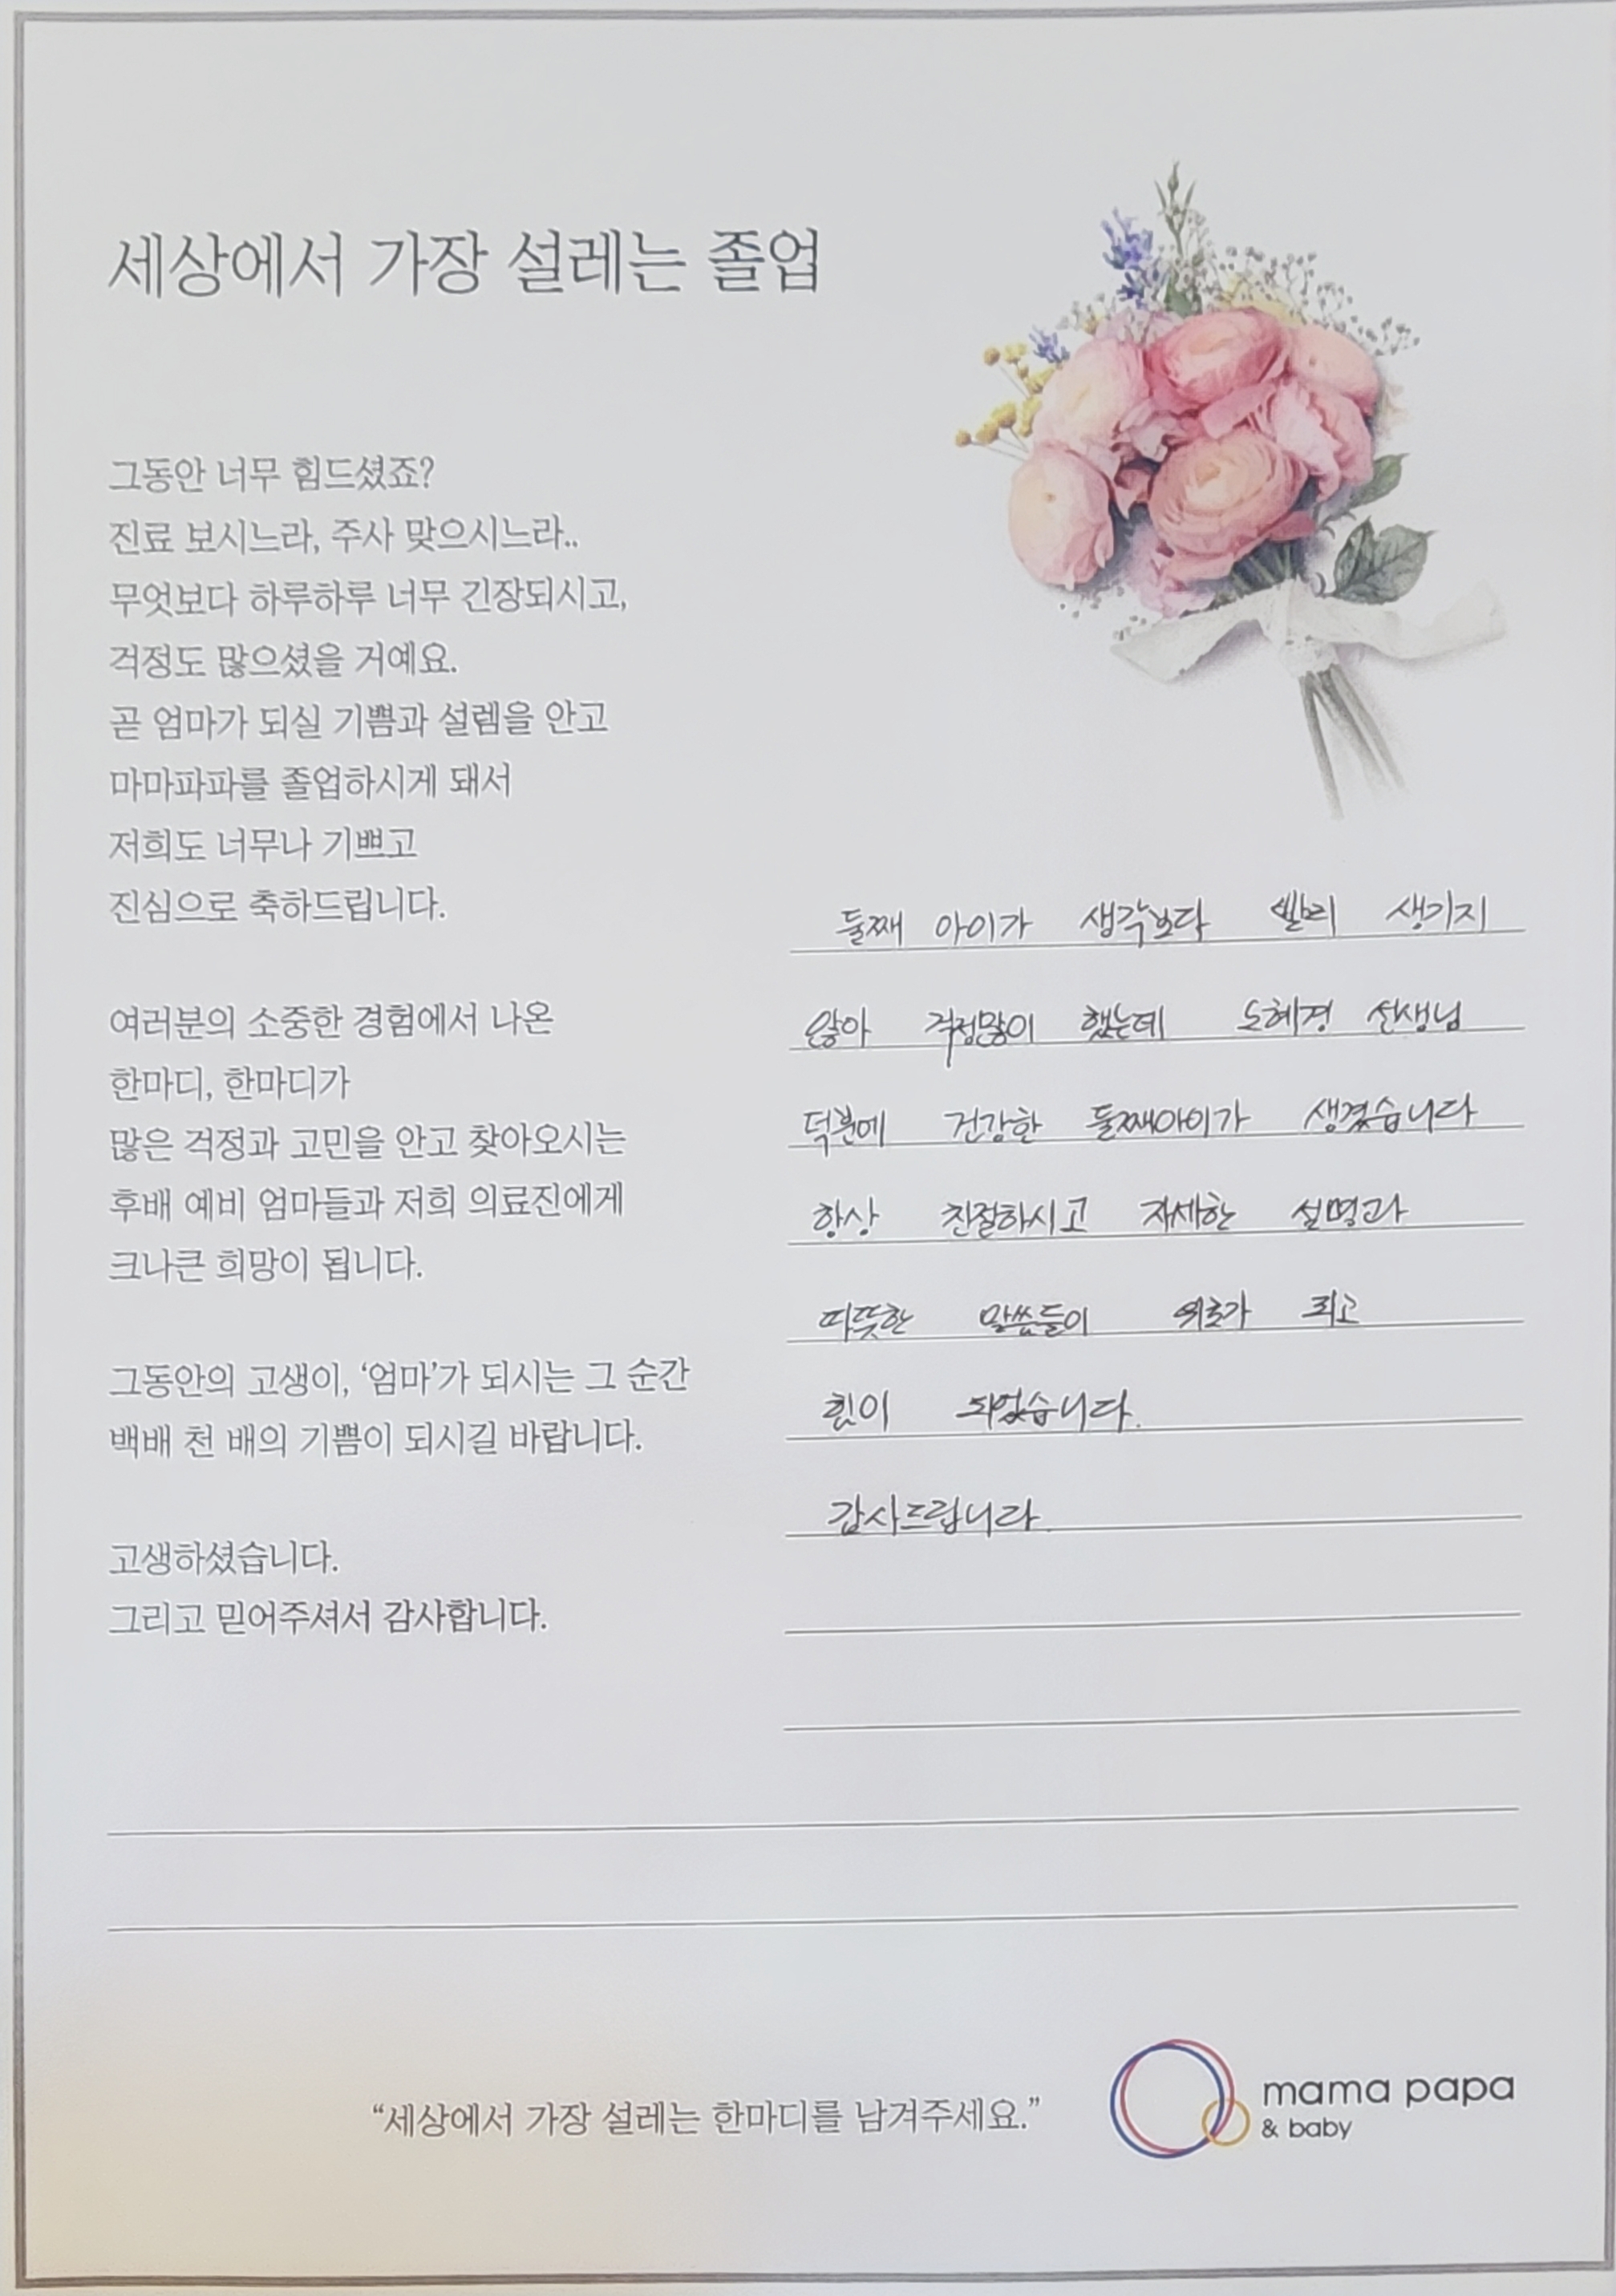 세상에서 가장 설레는 졸업
그동안 너무 힘드셨죠?
진료 보시느라, 주사 맞으시느라..
무엇보다 하루하루 너무 긴장되시고,
걱정도 많으셨을 거예요.
곧 엄마가 되실 기쁨과 설렘을 안고
마마파파를 졸업하시게 돼서
저희도 너무나 기쁘고
진심으로 축하드립니다.
여러분의 소중한 경험에서 나온
한마디, 한마디가
많은 걱정과 고민을 안고 찾아오시는
후배 예비 엄마들과 저희 의료진에게
크나큰 희망이 됩니다.
그동안의 고생이, ‘엄마’가 되시는 그 순간
백배 천 배의 기쁨이 되시길 바랍니다.
고생하셨습니다.
그리고 믿어주셔서 감사합니다.
둘째 아이가 생각보다 빨리 생기지
않아 걱정많이 했는데 노혜경 선생님
덕분에 건강한 둘째아이가 생겼습니다
항상 친절하시고 자세한 설명과
따뜻한 말씀들이 위로가 되고
힘이 되었습니다.
감사드립니다.
“세상에서 가장 설레는 한마디를 남겨주세요.”
mama papa
& baby